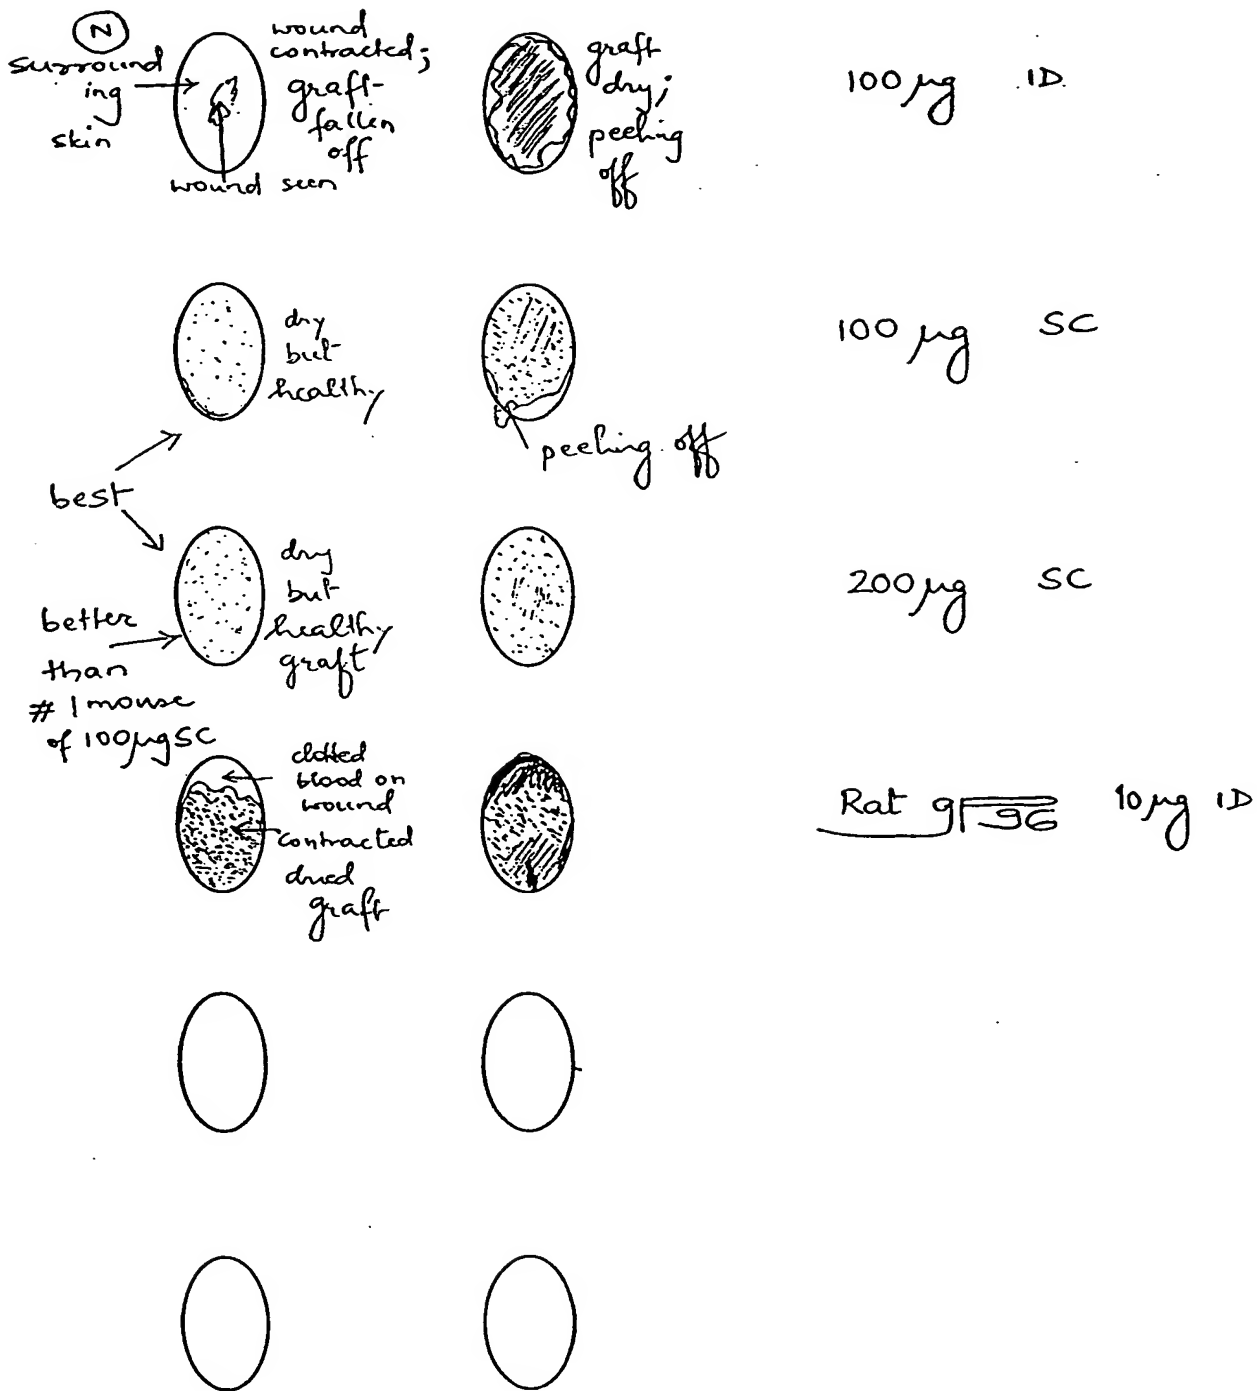 N
surround
ing
skin
wound
contracted;
graft-
fallen
off
wound seen
graft
dry;
peeling
off
100 µg ID
dry
but
healthy
peeling off
100 µg SC
best
dry
but
healthy
graft
200 µg SC
better
than
# 1 mouse
of 100µg SC
clotted
blood on
wound
contracted
dried
graft
Rat gp96 10µg ID